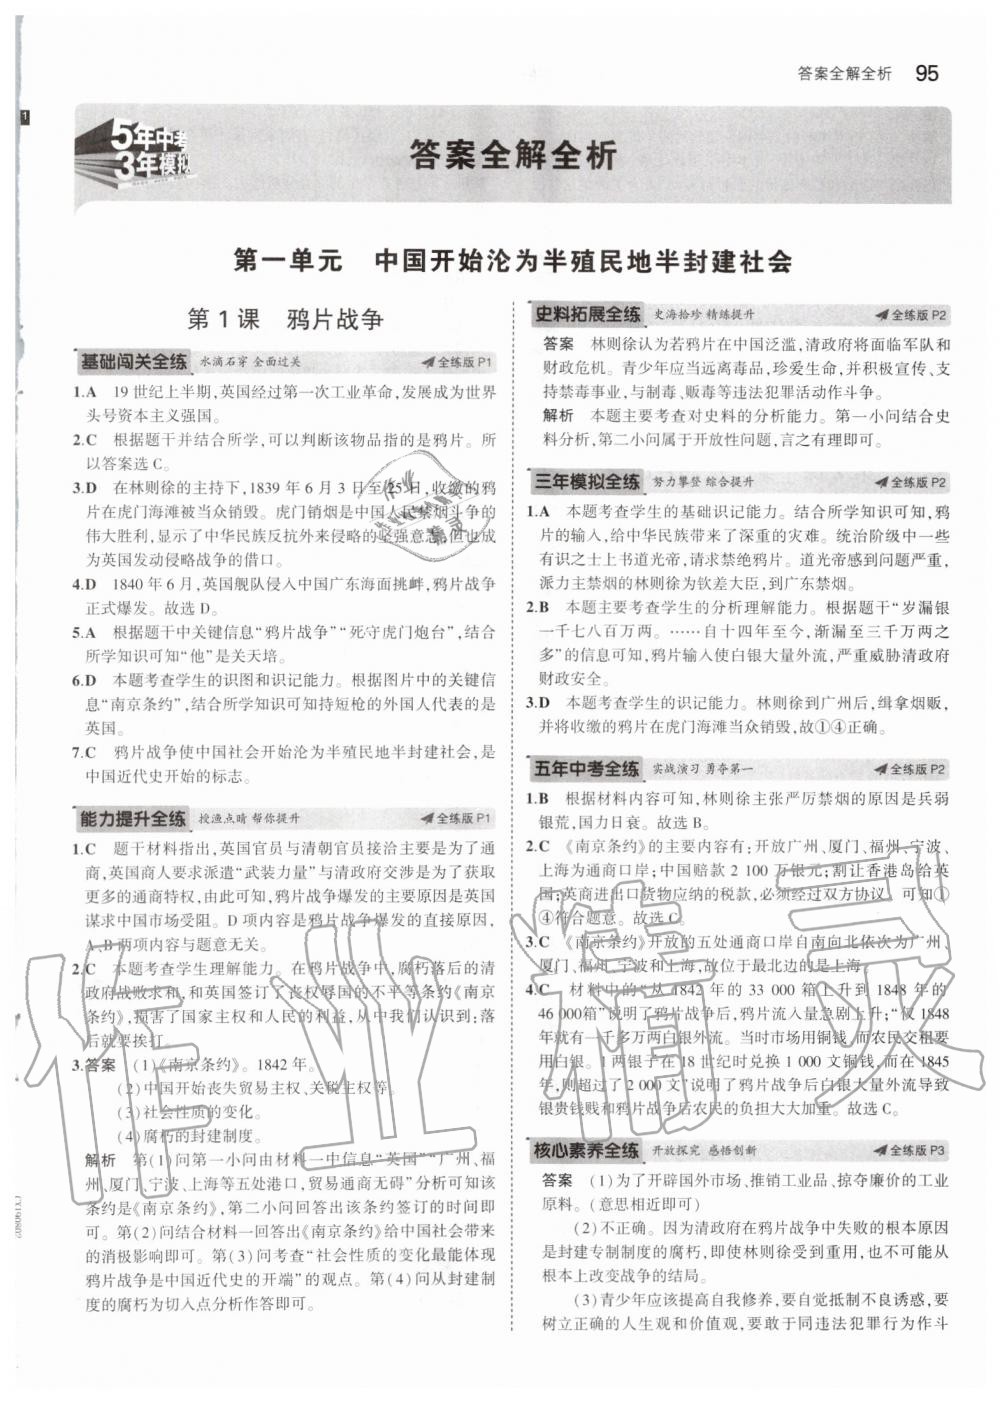 答案全解全析 95
1
5年中考
3年模拟
答案全解全析
第一单元 中国开始沦为半殖民地半封建社会
第1课 鸦片战争
基础闯关全练 水滴石穿 全面过关 全练版P1
1.A 19世纪上半期,英国经过第一次工业革命,发展成为世界
头号资本主义强国。
2.C 根据题干并结合所学,可以判断该物品指的是鸦片。所
以答案选C。
3.D 在林则徐的主持下,1839年6月3日至25日,收缴的鸦
片在虎门海滩被当众销毁。虎门销烟是中国人民禁烟斗争的
伟大胜利,显示了中华民族反抗外来侵略的坚强意志,但也成
为英国发动侵略战争的借口。
4.D 1840年6月,英国舰队侵入中国广东海面挑衅,鸦片战争
正式爆发。故选D。
5.A 根据题干中关键信息“鸦片战争”“死守虎门炮台”,结合
所学知识可知“他”是关天培。
6.D 本题考查学生的识图和识记能力。根据图片中的关键信
息“南京条约”,结合所学知识可知持短枪的外国人代表的是
英国。
7.C 鸦片战争使中国社会开始沦为半殖民地半封建社会,是
中国近代史开始的标志。
能力提升全练 授渔点睛 帮你提升 全练版P1
1.C 题干材料指出,英国官员与清朝官员接洽主要是为了通
商,英国商人要求派遣“武装力量”与清政府交涉是为了获取
更多的通商特权,由此可知,鸦片战争爆发的主要原因是英国
谋求中国市场受阻。D项内容是鸦片战争爆发的直接原因,
A、B两项内容与题意无关。
2.C 本题考查学生理解能力。在鸦片战争中,腐朽落后的清
政府战败求和,和英国签订了丧权辱国的不平等条约《南京
条约》,损害了国家主权和人民的利益,从中我们认识到:落
后就要挨打。
3.答案 (1)《南京条约》。1842年。
(2)中国开始丧失贸易主权、关税主权等。
(3)社会性质的变化。
(4)腐朽的封建制度。
解析 第(1)问第一小问由材料一中信息“英国”“广州、福
州、厦门、宁波、上海等五处港口,贸易通商无碍”分析可知该
条约是《南京条约》,第二小问回答出该条约签订的时间即
可。第(2)问结合材料一回答出《南京条约》给中国社会带来
的消极影响即可。第(3)问考查“社会性质的变化最能体现
鸦片战争是中国近代史的开端”的观点。第(4)问从封建制
度的腐朽为切入点分析作答即可。
史料拓展全练 史海拾珍 精练提升 全练版P2
答案 林则徐认为若鸦片在中国泛滥,清政府将面临军队和
财政危机。青少年应当远离毒品,珍爱生命,并积极宣传、支
持禁毒事业,与制毒、贩毒等违法犯罪活动作斗争。
解析 本题主要考查对史料的分析能力。第一小问结合史
料分析,第二小问属于开放性问题,言之有理即可。
三年模拟全练 努力攀登 综合提升 全练版P2
1.A 本题考查学生的基础识记能力。结合所学知识可知,鸦
片的输入,给中华民族带来了深重的灾难。统治阶级中一些
有识之士上书道光帝,请求禁绝鸦片。道光帝感到问题严重,
派力主禁烟的林则徐为钦差大臣,到广东禁烟。
2.B 本题主要考查学生的分析理解能力。根据题干“岁漏银
一千七八百万两。……自十四年至今,渐漏至三千万两之
多”的信息可知,鸦片输入使白银大量外流,严重威胁清政府
财政安全。
3.D 本题考查学生的识记能力。林则徐到广州后,缉拿烟贩,
并将收缴的鸦片在虎门海滩当众销毁,故①④正确。
五年中考全练 实战演习 勇夺第一 全练版P2
1.B 根据材料内容可知,林则徐主张严厉禁烟的原因是兵弱
银荒,国力日衰。故选B。
2.C 《南京条约》的主要内容有:开放广州、厦门、福州、宁波、
上海为通商口岸;中国赔款2 100万银元;割让香港岛给英
国;英商进出口货物应纳的税款,必须经过双方协议。可知①
④符合题意。故选C。
3.C 《南京条约》开放的五处通商口岸自南向北依次为广州、
厦门、福州、宁波和上海,故位于最北边的是上海。
4.C 材料中的“从1842年的33 000箱上升到1848年的
46 000箱”说明了鸦片战争后,鸦片流入量急剧上升;“仅1848
年就有一千多万两白银外流。当时市场用铜钱,而农民交租要
用白银。1两银子在18世纪时兑换1 000文铜钱,在1845
年,则超过了2 000文”说明了鸦片战争后白银大量外流导致
银贵钱贱和鸦片战争后农民的负担大大加重。故选C。
核心素养全练 开放探究 感悟创新 全练版P3
答案 (1)为了开辟国外市场、推销工业品、掠夺廉价的工业
原料。(意思相近即可)
(2)不正确。因为清政府在鸦片战争中失败的根本原因
是封建专制制度的腐朽,即使林则徐受到重用,也不可能从
根本上改变战争的结局。
(3)青少年应该提高自我修养,要自觉抵制不良诱惑,要
树立正确的人生观和价值观,要敢于同违法犯罪行为作斗
作业精灵
作业精灵